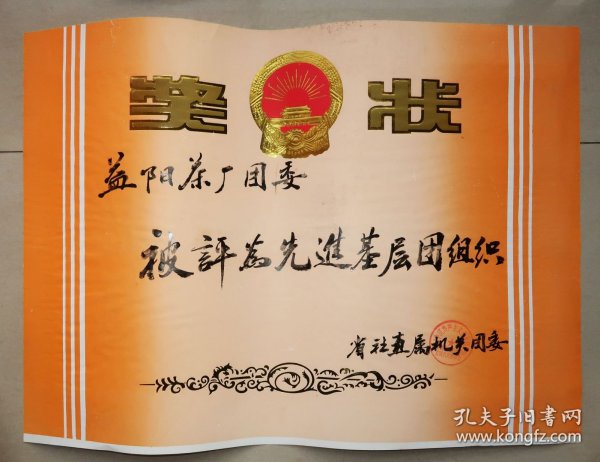 奖状
益阳茶厂团委
被評為先進基层团组织
省社直属机关团委
孔夫子旧书网
www.kongfz.com